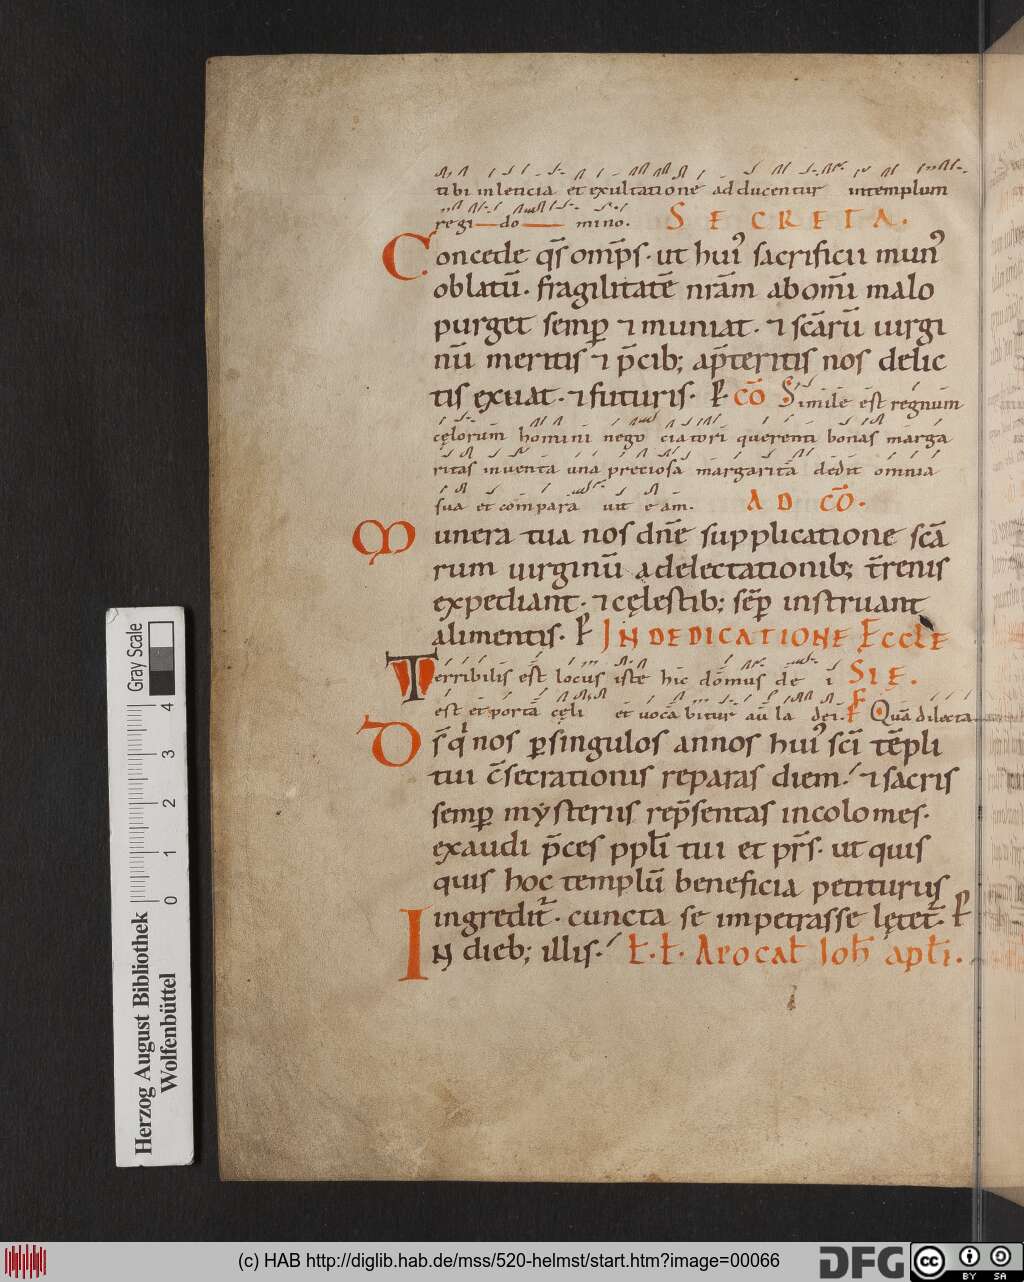 tibi in leticia et exultatione adducentur in templum
regi do mino. SECRETA.
Concede q̄s om̄ps. ut hui᾽ sacrificii mun᾽
oblatū. fragilitatē nrām ab om̄i malo
purget semꝑ ⁊ muniat. ⁊ scārū uirgi
nū meritis ⁊ p̄cib; a p̄teritis nos delic
tis exuat. ⁊ futuris. P̄ CŌ Simile est regnum
cęlorum homini nego ciatori querenti bonas marga
ritas inventa una preciosa margarita dedit omnia
sua et compara uit eam. AD CŌ.
Munera tua nos dn̄e supplicatione scā
rum uirginū a delectationib; t̄renis
expediant. ⁊ cęlestib; sēp̄ instruant
alimentis. P̄ IN DEDICATIONE ECCLE
Terribilis est locus iste hic domus de i SIĘ.
est et porta cęli et uoca bitur aula dei. P̄ Quā dilecta
D̄s qͥ nos ꝑ singulos annos hui᾽ sc̄i tēpli
tui c̄secrationis reparas diem. ⁊ sacris
semꝑ mysteriis rep̄sentas incolomes.
exaudi p̄ces ppl̄i tui et p̄rs. ut quis
quis hoc templū beneficia petiturus
ingredit᷑. cuncta se impetrasse lętet᷑. P̄
IN dieb; illis. Ł. Ł. Apocał Ioh̄ apł̄i.
Herzog August Bibliothek
Wolfenbüttel
0 1 2 3 4
Gray Scale
(c) HAB http://diglib.hab.de/mss/520-helmst/start.htm?image=00066
DFG
cc BY SA